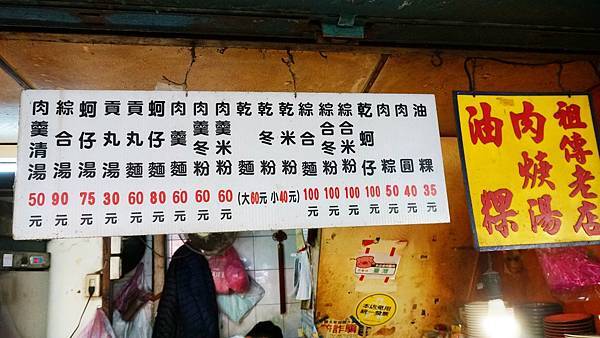 肉羹清湯 50元
綜合湯 90元
蚵仔湯 75元
貢丸湯 30元
貢丸麵 60元
蚵仔麵 80元
肉羹麵 60元
肉羹冬粉 60元
肉羹米粉 60元
乾麵
乾冬粉
乾米粉
(大60元 小40元)
綜合麵 100元
綜合冬粉 100元
綜合米粉 100元
乾蚵仔 100元
肉粽 50元
肉圓 40元
油粿 35元
祖傳老店
肉焿湯
油粿